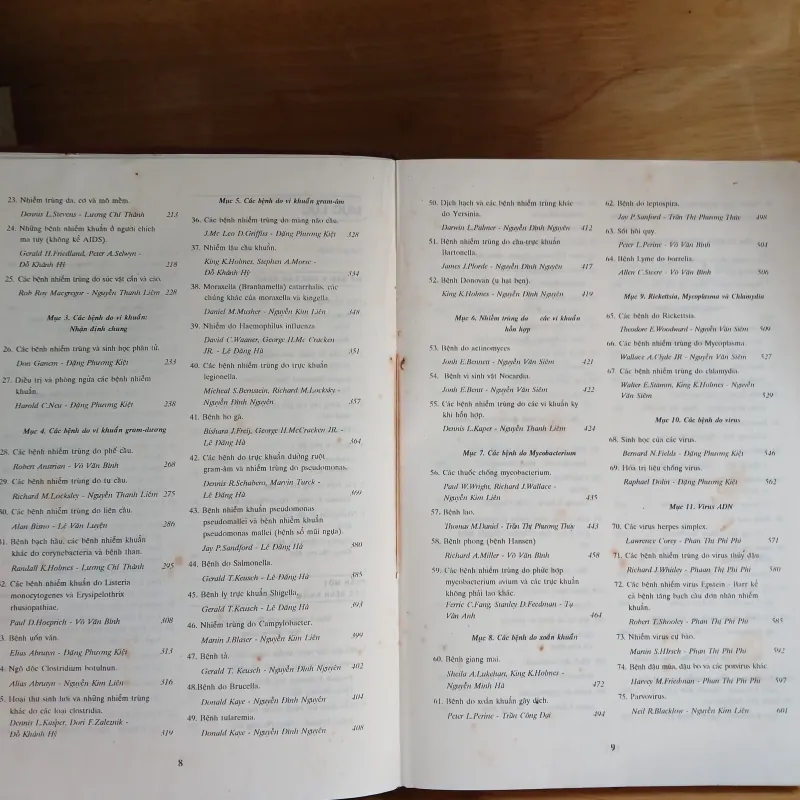 23. Nhiễm trùng da, cơ và mô mềm.
Dennis L.Stevens - Lương Chí Thành 213
24. Những bệnh nhiễm khuẩn ở người chích
ma túy (không kể AIDS).
Gerald H.Friedland, Peter A.Selwyn -
Đỗ Khánh Hỷ 218
25. Các bệnh nhiễm trùng do súc vật cắn và cào.
Rob Roy Macgregor - Nguyễn Thanh Liêm 228
Mục 3. Các bệnh do vi khuẩn:
Nhận định chung
26. Các bệnh nhiễm trùng và sinh học phân tử.
Don Ganem - Đặng Phương Kiệt 233
27. Điều trị và phòng ngừa các bệnh nhiễm
khuẩn.
Harold C.Neu - Đặng Phương Kiệt 238
Mục 4. Các bệnh do vi khuẩn gram-dương
28. Các bệnh nhiễm trùng do phế cầu.
Robert Austrian - Võ Văn Bình 268
29. Các bệnh nhiễm trùng do tụ cầu.
Richard M.Locksley - Nguyễn Thanh Liêm 275
30. Các bệnh nhiễm trùng do liên cầu.
Alan Bisno - Lê Văn Luyện 286
31. Bệnh bạch hầu, các bệnh nhiễm khuẩn
khác do corynebacteria và bệnh than.
Randall K.Holmes - Lương Chí Thành 295
32. Các bệnh nhiễm khuẩn do Listeria
monocytogenes và Erysipelothrix
rhusiopathiae.
Paul D.Hoeprich - Võ Văn Bình 308
3. Bệnh uốn ván.
Elias Abrutyn - Đặng Phương Kiệt 313
4. Ngộ độc Clostridium botulnun.
Alias Abrutyn - Nguyễn Kim Liên 316
5. Hoại thư sinh hơi và những nhiễm trùng
khác do các loại clostridia.
Dennis L.Kasper, Dori F.Zaleznik -
Đỗ Khánh Hỷ 319
Mục 5. Các bệnh do vi khuẩn gram-âm
36. Các bệnh nhiễm trùng do màng não cầu.
J.Mc Leo D.Griffiss - Đặng Phương Kiệt 328
37. Nhiễm lậu cầu khuẩn.
King K.Holmes, Stephen A.Morse -
Đỗ Khánh Hỷ 334
38. Moraxella (Branhamella) catarrhalis, các
chủng khác của moraxella và kingella.
Daniel M.Musher - Nguyễn Kim Liên 348
39. Nhiễm do Haemophilus influenza
David C.Waaner, George H.Mc Cracken
JR. - Lê Đăng Hà 351
40. Các bệnh nhiễm trùng do trực khuẩn
legionella.
Micheal S.Bernstein, Richard M.Locksky -
Nguyễn Đình Nguyên 357
41. Bệnh ho gà.
Bishara J.Freij, George H.McCracken JR. -
Lê Đăng Hà 364
42. Các bệnh do trực khuẩn đường ruột
gram-âm và nhiễm trùng do pseudomonas.
Dennis R.Schabero, Marvin Turck -
Lê Đăng Hà 369
43. Bệnh nhiễm khuẩn pseudomonas
pseudomallei và bệnh nhiễm khuẩn
pseudomonas mallei (bệnh sổ mũi ngựa).
Jay P.Sandford - Lê Đăng Hà 380
44. Bệnh do Salmonella.
Gerald T.Keusch - Lê Đăng Hà 385
45. Bệnh lỵ trực khuẩn Shigella.
Gerald T.Keusch - Lê Đăng Hà 393
46. Nhiễm trùng do Campylobacter.
Martin J.Blaser - Nguyễn Kim Liên 399
47. Bệnh tả.
Gerald T. Keusch - Nguyễn Đình Nguyên 402
48.Bệnh do Brucella.
Donald Kaye - Nguyễn Đình Nguyên 404
49. Bệnh tularemia.
Donald Kaye - Nguyễn Đình Nguyên 408
8
50. Dịch hạch và các bệnh nhiễm trùng khác
do Yersinia.
Darwin L.Palmer - Nguyễn Đình Nguyên 412
51. Bệnh nhiễm trùng do cầu-trực khuẩn
Bartonella.
James J.Plorde - Nguyễn Đình Nguyên 417
52. Bệnh Donovan (u hạt bẹn).
King K.Holmes - Nguyễn Đình Nguyên 419
Mục 6. Nhiễm trùng do các vi khuẩn
hỗn hợp
53. Bệnh do actinomyces
Jonh E.Bennett - Nguyễn Văn Siêm 421
54. Bệnh vi sinh vật Nocardia.
Jonh E.Benn - Nguyễn Văn Siêm 422
55. Các bệnh nhiễm trùng do các vi khuẩn kỵ
khí hỗn hợp.
Dennis L.Kaper - Nguyễn Thanh Liêm 424
Mục 7. Các bệnh do Mycobacterium
56. Các thuốc chống mycobacterium.
Paul W.Wright, Richard J.Wallace -
Nguyễn Kim Liên 435
57. Bệnh lao.
Thomas M.Daniel - Trần Thị Phương Thúy 443
58. Bệnh phong (bệnh Hansen)
Richard A.Miller - Võ Văn Bình 458
59. Các bệnh nhiễm trùng do phức hợp
mycobacterium avium và các trực khuẩn
không phải lao khác.
Ferric C.Fang, Stanley D.Feedman - Tạ
Vân Anh 464
Mục 8. Các bệnh do xoắn khuẩn
60. Bệnh giang mai.
Sheila A.Lukehart, King K.Holmes -
Nguyễn Minh Hà 472
61. Bệnh do xoắn khuẩn gây dịch.
Peter L.Perine - Trần Công Đại 494
62. Bệnh do leptospira.
Jay P.Sanford - Trần Thị Phương Thúy 498
63. Sốt hồi quy.
Peter L.Perine - Võ Văn Bình 504
64. Bệnh Lyme do borrelia.
Allen C.Steere - Võ Văn Bình 506
Mục 9. Rickettsia, Mycoplasma và Chlamydia
65. Các bệnh do Rickettsia.
Theodore E.Woodward - Nguyễn Văn Siêm 509
66. Các bệnh nhiễm trùng do Mycoplasma.
Wallace A.Clyde JR - Nguyễn Văn Siêm 527
67. Các bệnh nhiễm trùng do chlamydia.
Walter E.Stamm, King K.Holmes - Nguyễn
Văn Siêm 529
Mục 10. Các bệnh do virus
68. Sinh học của các virus.
Bernard N.Fields - Đặng Phương Kiệt 546
69. Hóa trị liệu chống virus.
Raphael Dolin - Đặng Phương Kiệt 562
Mục 11. Virus ADN
70. Các virus herpes simplex.
Lawrence Corey - Phan Thị Phi Phi 571
71. Các bệnh nhiễm trùng do virus thủy đậu
Richard J.Whitley - Phan Thị Phi Phi 580
72. Các bệnh nhiễm virus Epstein - Barr kể
cả bệnh tăng bạch cầu đơn nhân nhiễm
khuẩn.
Robert T.Shooley - Phan Thị Phi Phi 585
73. Nhiễm virus cự bào.
Martin S.HIrsch - Phan Thị Phi Phi 592
74. Bệnh đậu mùa, đậu bò và các poxvirus khác
Harvey M.Friedman - Phan Thị Phi Phi 597
75. Parvovirus.
Neil R.Blacklow - Nguyễn Kim Liên 601
9